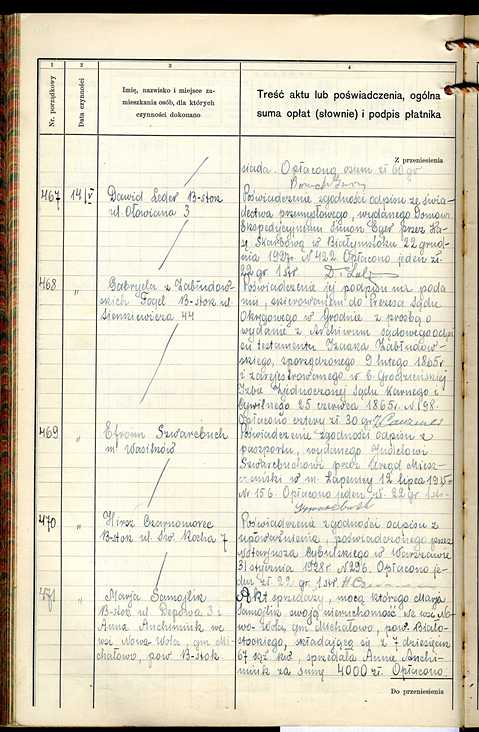 1
2
3
4
Nr. porządkowy
Data czynności
Imię, nazwisko i miejsce za-
mieszkania osób, dla których
czynności dokonano
Treść aktu lub poświadczenia, ogólna
suma opłat (słownie) i podpis płatnika
Z przeniesienia
siada. Opłacono osem zł 60 gr
467 14/V Dawid Leder B-stok
ul. Ołowiana 3
Poświadczenie zgodności odpisu ze świa-
dectwa przemysłowego, wydanego Domowi
Ekspedycyjnemu Simon Eger przez Ka-
sę Skarbową w Białymstoku 22 grud-
nia 1927 N 422 Opłacono jeden zł.
22 gr 1 str.
468 " Gabryela z Zabłudow-
skich Fogel B-stok ul
Sienkiewicza 44
Poświadczenie jej podpisu na poda
niu, skierowanem do Prezesa Sądu
Okręgowego w Grodnie z prośbą o
wydanie z Archiwum sądowego odpi
su testamentu Izaaka Zabłudow-
skiego, sporządzonego 9 lutego 1865 r
i zarejestrowanego w b. Grodzieńskiej
Izbie Zjednoczonej Sądu Karnego i
Cywilnego 25 czerwca 1865 r. N 198.
Opłacono cztery zł. 30 gr.
469 " Efroim Szwarcbuch
m. Wasilków
Poświadczenie zgodności odpisu z
paszportu, wydanego Judielowi
Szwarcbuchowi przez Urząd Miesz-
czański w m. Łapenicy 12 lipca 1915 r
N 156. Opłacono jeden zł. 22 gr 1 str.
470 " Hirsz Czarnomorec
B-stok ul. Św. Rocha 7
Poświadczenie zgodności odpisu z
upoważnienia, poświadczonego przez
Notarjusza Cybulskiego w Warszawie
31 stycznia 1928 r N 296. Opłacono je-
den zł. 22 gr. 1 str.
471 " Marja Samojlik
B-stok ul. Peposa 3 i
Anna Anchimiuk we
wsi Nowa Wola, gm Mi-
chałowo, pow B-stok
Akt sprzedaży, mocą którego Marja
Samojlik swoją nieruchomość we wsi No-
wo-Wola, gm Michałowo, pow. Biało-
stockiego, składającą się z 7 dziesięcin
67 sąż. kw, sprzedała Annie Anchi-
miuk za sumę 4000 zł. Opłacono
Do przeniesienia